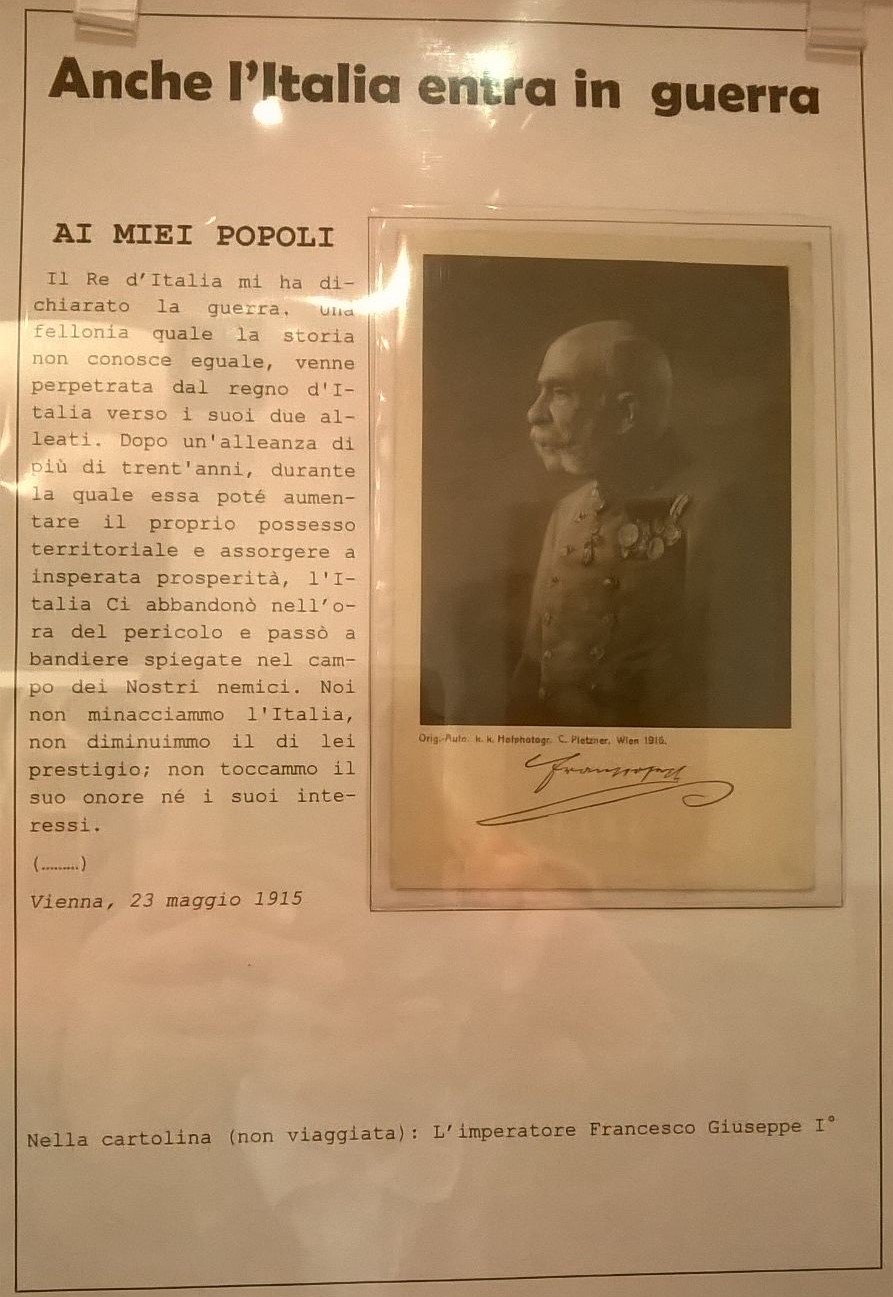 Anche l'Italia entra in guerra
AI MIEI POPOLI
Il Re d'Italia mi ha di-
chiarato la guerra. Una
fellonia quale la storia
non conosce eguale, venne
perpetrata dal regno d'I-
talia verso i suoi due al-
leati. Dopo un'alleanza di
più di trent'anni, durante
la quale essa poté aumen-
tare il proprio possesso
territoriale e assorgere a
insperata prosperità, l'I-
talia Ci abbandonò nell'o-
ra del pericolo e passò a
bandiere spiegate nel cam-
po dei Nostri nemici. Noi
non minacciammo l'Italia,
non diminuimmo il di lei
prestigio; non toccammo il
suo onore né i suoi inte-
ressi.
(.........)
Vienna, 23 maggio 1915
Orig.-Aufn. k. k. Hofphotogr. C. Pietzner, Wien 1915.
Nella cartolina (non viaggiata): L'imperatore Francesco Giuseppe I°